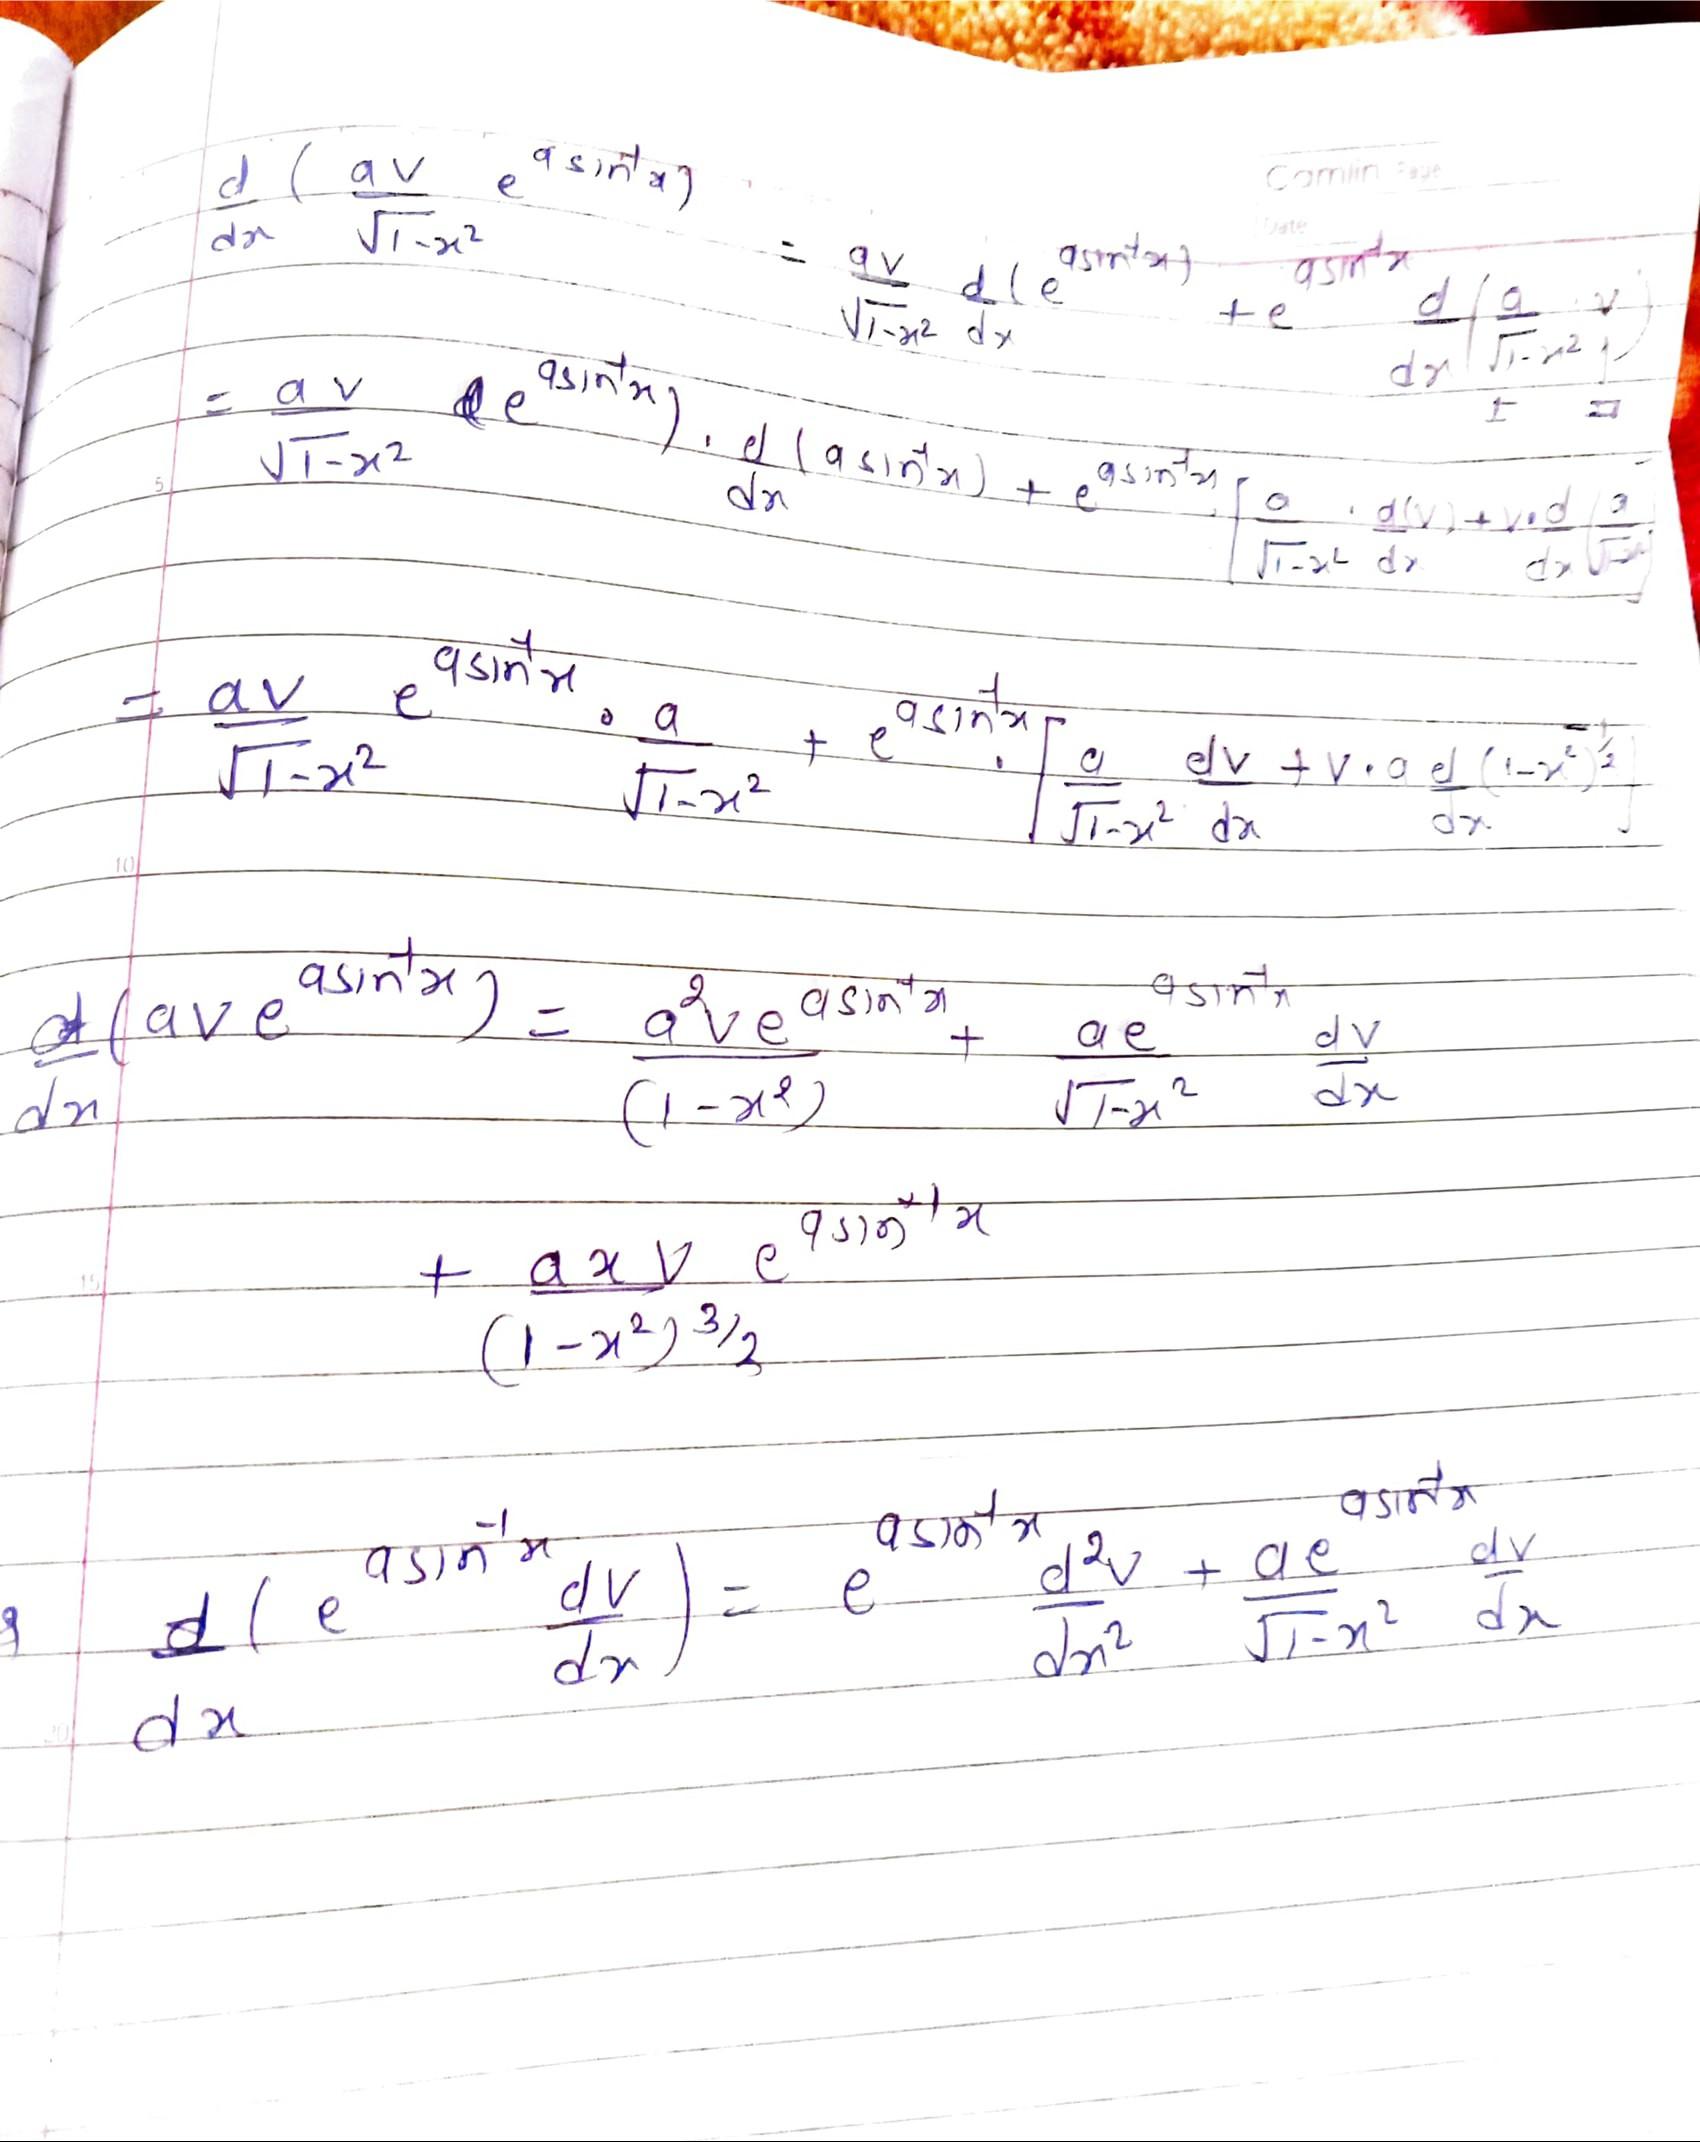 Camlin Page
Date
d/dx ( av/√1-x² e^asin⁻¹x)
= av/√1-x² d/dx (e^asin⁻¹x) + e^asin⁻¹x d/dx ( a/√1-x² . v )
I II
= av/√1-x² (e^asin⁻¹x) . d/dx (asin⁻¹x) + e^asin⁻¹x . [ a/√1-x² . d(v)/dx + v . d/dx ( a/√1-x² ) ]
5
= av/√1-x² e^asin⁻¹x . a/√1-x² + e^asin⁻¹x . [ a/√1-x² dv/dx + v . a d/dx (1-x²)^-1/2 ]
10
d/dx (av e^asin⁻¹x) = a²v e^asin⁻¹x/(1-x²) + ae^asin⁻¹x/√1-x² dv/dx
+ axv/(1-x²)^3/2 e^asin⁻¹x
15
d/dx ( e^asin⁻¹x dv/dx ) = e^asin⁻¹x d²v/dx² + ae^asin⁻¹x/√1-x² dv/dx
20